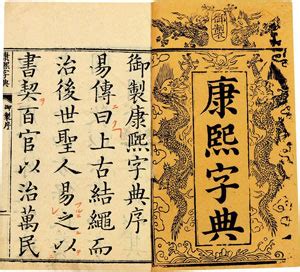 御製
康熙字典
御製康熙字典序
易傳曰上古結繩而
治後世聖人易之以
書契百官以治萬民
康熙字典 御製序